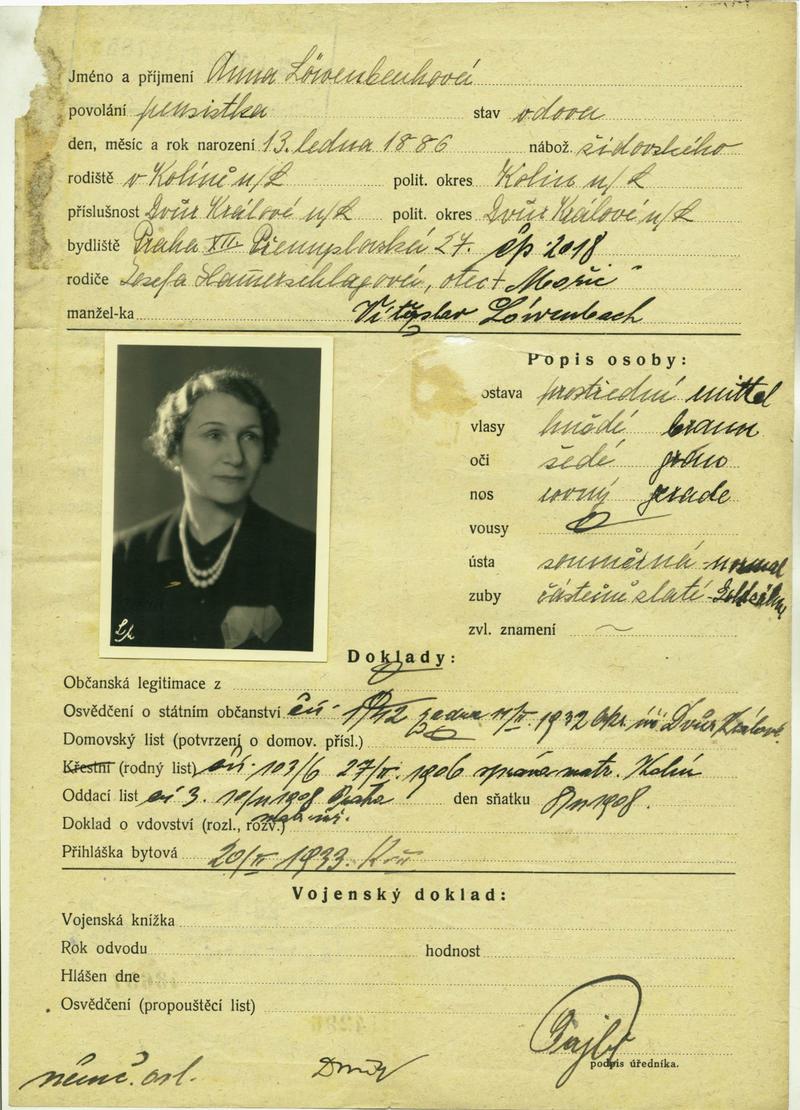 Jméno a příjmení Anna Löwenbachová
povolání pensistka stav vdova
den, měsíc a rok narození 13. ledna 1886 nábož. židovského
rodiště v Kolíně n/L polit. okres Kolín n/L
příslušnost Dvůr Králové n/L polit. okres Dvůr Králové n/L
bydliště Praha XII. Přemyslovská 27. čp. 2018
rodiče Josefa Hamerschlagová, otec + Mořic
manžel-ka Vítězslav Löwenbach
Popis osoby:
ostava prostřední mittel
vlasy hnědé braun
oči šedé grau
nos rovný gerade
vousy
ústa souměrná normal
zuby částečně zlaté Goldzähne
zvl. znamení ~
Doklady:
Občanská legitimace z
Osvědčení o státním občanství čís. 1932 Okr. úř. Dvůr Králové
Domovský list (potvrzení o domov. přísl.)
Křestní (rodný list) čís. 103/6 1906 správa matr. Kolín
Oddací list čís 3. 1908 Praha den sňatku 1908.
mat. úř.
Doklad o vdovství (rozl., rozv.)
Přihláška bytová 1933.
Vojenský doklad:
Vojenská knížka
Rok odvodu hodnost
Hlášen dne
Osvědčení (propouštěcí list)
podpis úředníka.